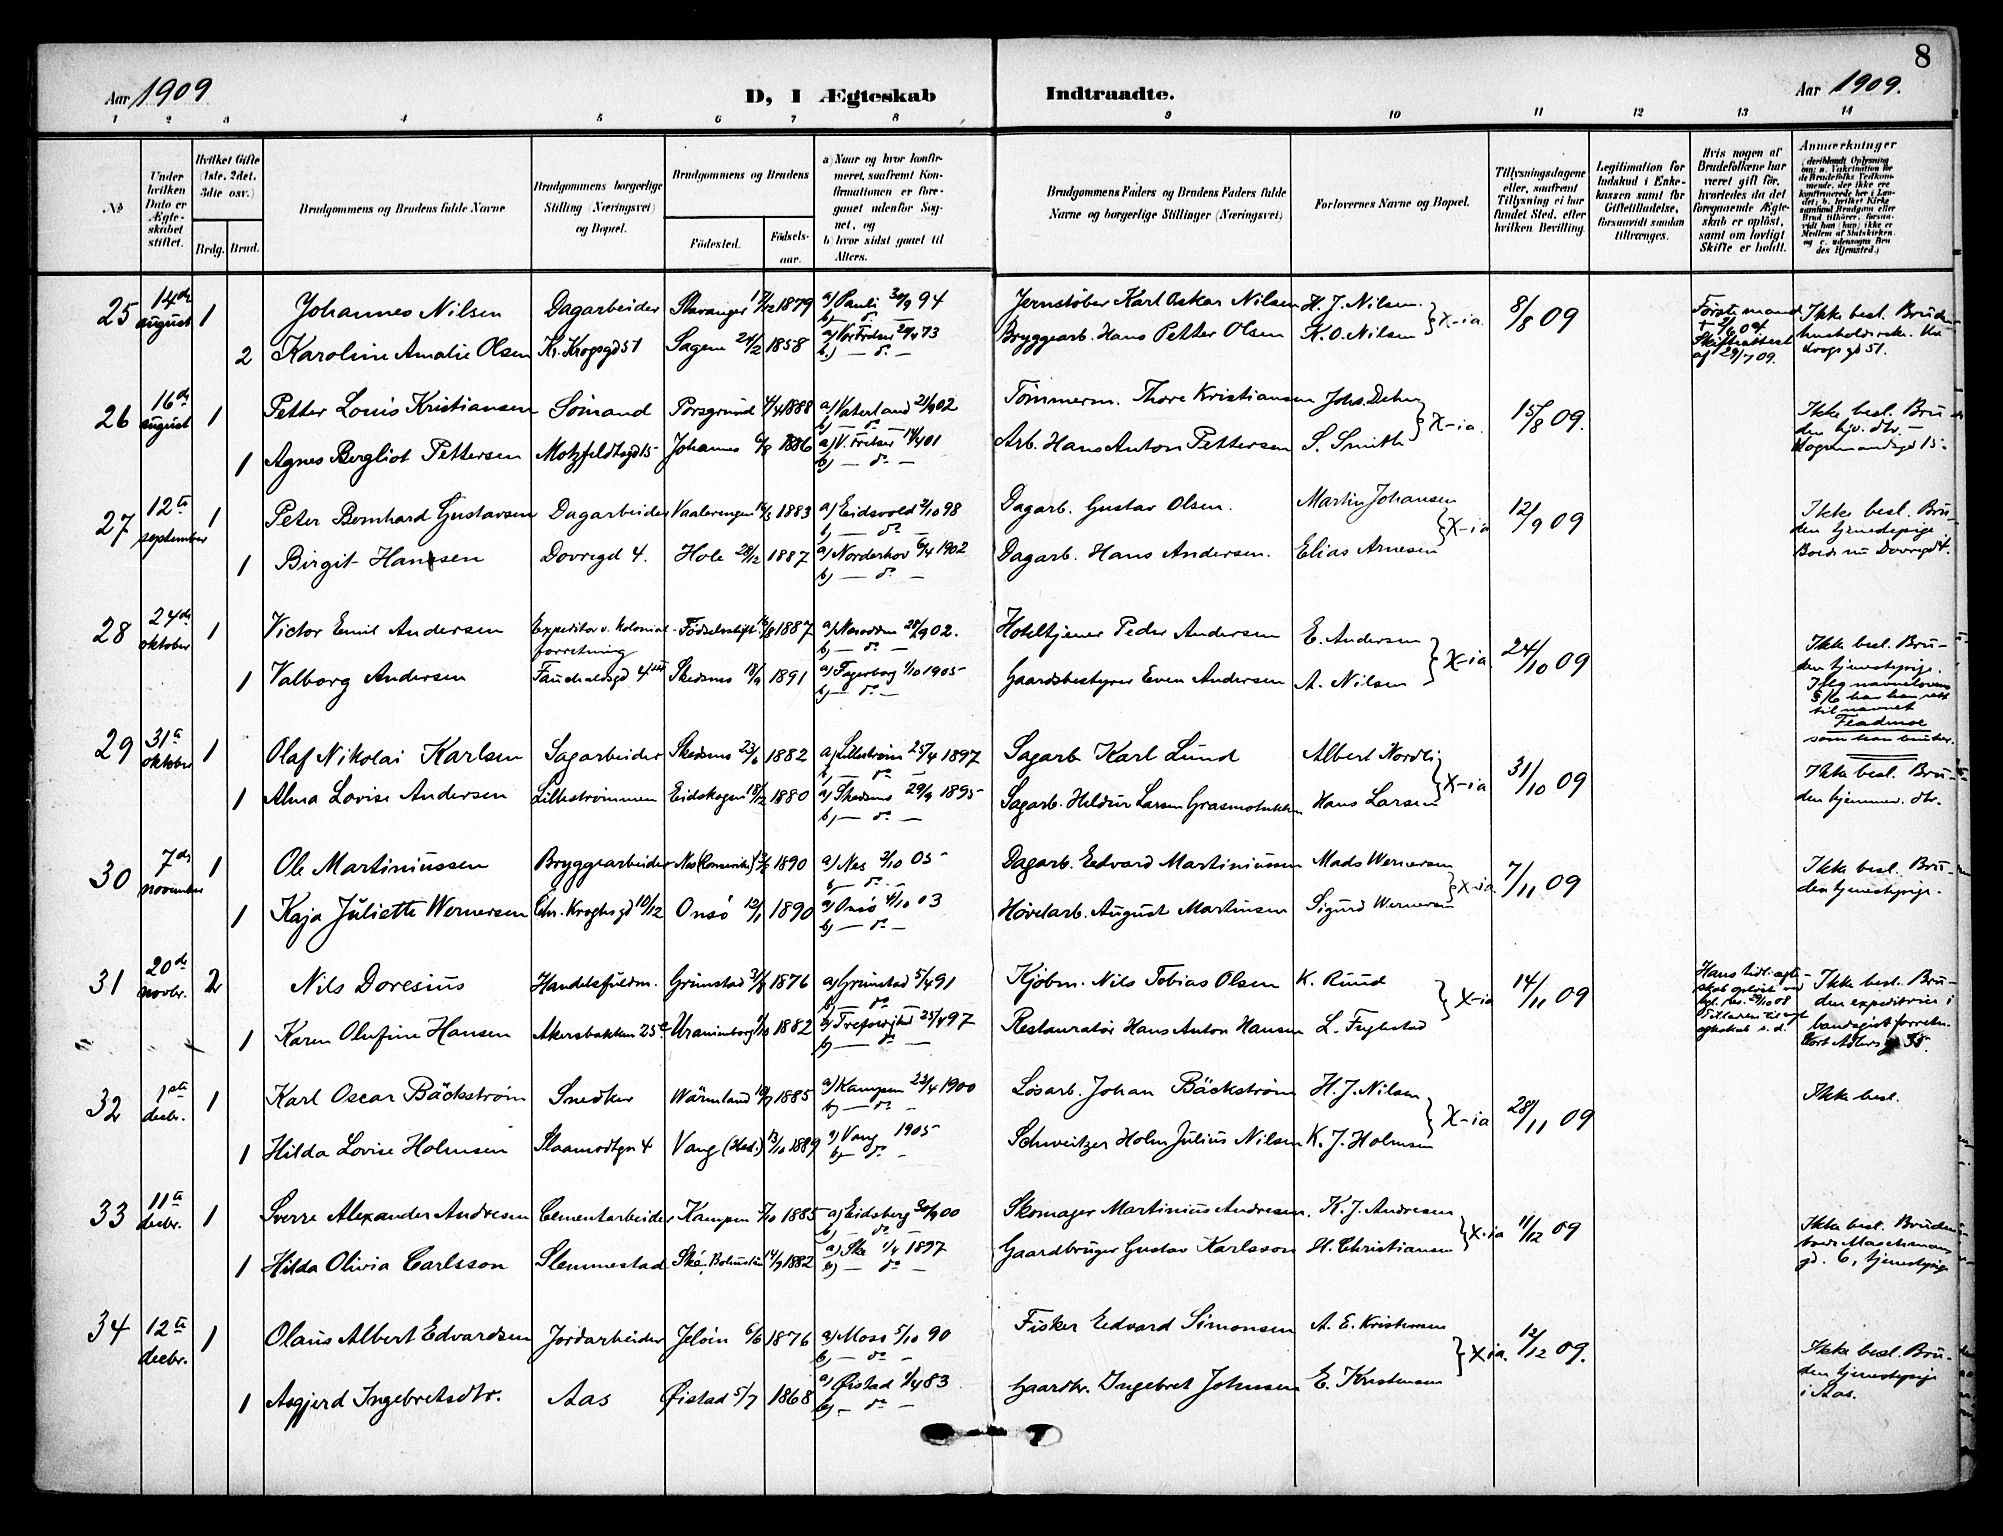 8
Aar 1909 D, I Ægteskab Indtraadte. Aar 1909.
1 2 3 4 5 6 7 8 9 10 11 12 13 14
No
Under hvilken Dato er Ægteskabet stiftet.
Hvilket Gifte (1ste, 2det, 3die osv.)
Brdg. Brud.
Brudgommens og Brudens fulde Navne
Brudgommens borgerlige Stilling (Næringsvei) og Bopæl.
Brudgommens og Brudens
Fødested. Fødselsaar.
a) Naar og hvor konfirmeret, saafremt Konfirmationen er foregaaet udenfor Sognet, og
b) hvor sidst gaaet til Alters.
Brudgommens Faders og Brudens Faders fulde Navne og borgerlige Stillinger (Næringsvei)
Forlovernes Navne og Bopæl.
Tillysningsdagene eller, saafremt Tillysning ei har fundet Sted, efter hvilken Bevilling.
Legitimation for Indskud i Enkekassen samt for Giftetilladelse, forsaavidt saadan tiltrænges.
Hvis nogen af Brudefolkene har været gift før, hvorledes da det foregaaende Ægteskab er opløst, samt om lovligt Skifte er holdt.
Anmerkninger
25 14de august 1 Johannes Nilsen Dagarbeider Stavanger 17/12 1879 a) Pauli 30/9 94 Jernstøber Karl Oskar Nilsen H. J. Nilsen X-ia. 8/8 09 Første mand Ikke besl. Bruden
b) — d° —
2 Karoline Amalie Olsen Kr. Krogsgd 51 Sagene 24/2 1858 Bryggearb. Hans Petter Olsen K. O. Nilsen Skifteattest af 29/7 09.
b) — d° —
26 16de august 1 Petter Louis Kristiansen Sømand Porsgrund 4/4 1888 a) Vaterland 21/9 02 Tømmerm. Thore Kristiansen X-ia. 15/8 09. Ikke besl. Bruden hjv. dtr.
b) — d° —
1 Agnes Bergliot Pettersen Motzfeldtsgd 15 Johannes 6/8 1886 a) V. Frelser 14/4 01 Arb. Hans Anton Pettersen S. Smith
b) — d° —
27 12te september 1 Peter Bernhard Gustavsen Dagarbeider Vaalerengen 1883 a) Eidsvold 2/10 98 Dagarb. Gustav Olsen. Martin Johansen X-ia 12/9 09 Ikke besl. Bruden tjenestepige
b) — d° —
1 Birgit Hansen Dovregd 4. Hole 28/12 1887 a) Norderhov 6/4 1902 Dagarb. Hans Andersen. Elias Arnesen Boede nu Dovregd 4.
b) — d° —
28 24de oktober 1 Victor Emil Andersen Expeditør v. Kolonialforretning Fødselsstift. 16/8 1887 a) Nesodden 28/9 02. Hoteltjener Peder Andersen E. Andersen X-ia. 24/10 09 Ikke besl. Bruden tjenestepige.
b) — d° —
1 Valborg Andersen Fauchaldsgd 4 Skedsmo 18/9 1891 a) Fagerborg 1/10 1905 Gaardsbestyrer Even Andersen A. Nilsen Iflg navneloven § 16 har han rett til navnet Fladmoe som han bruker.
b) — d° —
29 31te oktober 1 Olaf Nikolai Karlsen Sagarbeider Skedsmo 23/6 1882 a) Lillestrøm 25/4 1897 Sagarb Karl Lund Albert Nordli X-ia 31/10 09 Ikke besl. Bruden hjemmev. dtr.
b) — d° —
1 Alma Lovise Andersen Lillestrømmen Eidskogen 18/12 1880 a) Skedsmo 29/9 1895 Sagarb. Hans Larsen
b) — d° —
30 7de november 1 Ole Martiniussen Bryggearbeider Nes 1890 a) Nes 2/10 05 Dagarb. Edvard Martiniussen Mads Wernersen X-ia 7/11 09 Ikke besl. Bruden tjenestepige.
b) — d° —
1 Kaja Juliette Wernersen Chr. Kroghsgd 10/12 Onsø 12/1 1890 a) Onsø 4/10 03 Høvelarb. August Martinsen Sigurd Wernersen
b) — d° —
31 20de novbr. 2 Nils Doresius Handelsfuldm. Grimstad 1876 a) Grimstad 5/4 91 Kjøbm. Nils Tobias Olsen K. Ruud X-ia 14/11 09 Ikke besl. Bruden expeditrice i bandagistforretn.
b) — d° —
1 Karen Olufine Hansen Akersbakken 25 Uranienborg 1882 25/4 97 Restauratør Hans Anton Hansen L. Frylestad Cort Adlersg 35.
b) — d° —
32 1ste decbr. 1 Karl Oscar Bäckstrøm Snedker Wärmland 1885 a) Kampen 23/4 1900 Løsarb. Johan Bäckstrøm H. J. Nilsen X-ia 28/11 09 Ikke besl.
b) — d° —
1 Hilda Lovise Holmsen Vang (Hed.) 13/10 1889 a) Vang 1905 Schweitzer Holm Julius Nilsen K. J. Holmsen
b) — d° —
33 11te decbr. 1 Sverre Alexander Andresen Cementarbeider Kampen 1885 a) Eidsberg 30/9 00 Skomager Martinius Andresen. K. J. Andresen X-ia 11/12 09 Ikke besl. Bruden
b) — d° —
1 Hilda Olivia Carlsson Slemmestad Ské, Bohuslän 14/9 1882 a) Ske 1/4 1897 Gaardbruger Gustav Karlsson H. Christiansen gd. 6, tjenestepige
b) — d° —
34 12te decbr. 1 Olaus Albert Edvardsen Jordarbeider Jeløen 6/6 1876 a) Moss 5/10 90 Fisker Edvard Simonsen A. E. Kristensen X-ia. 12/12 09. Ikke besl. Bruden tjenestepige i Aas.
b) — d° —
1 Asgjerd Ingebretsdtr. Aas Øistad 5/7 1868 a) Øistad 1/4 83 Gaardbr. Ingebret Johnsen E. Kristensen
b) — d° —